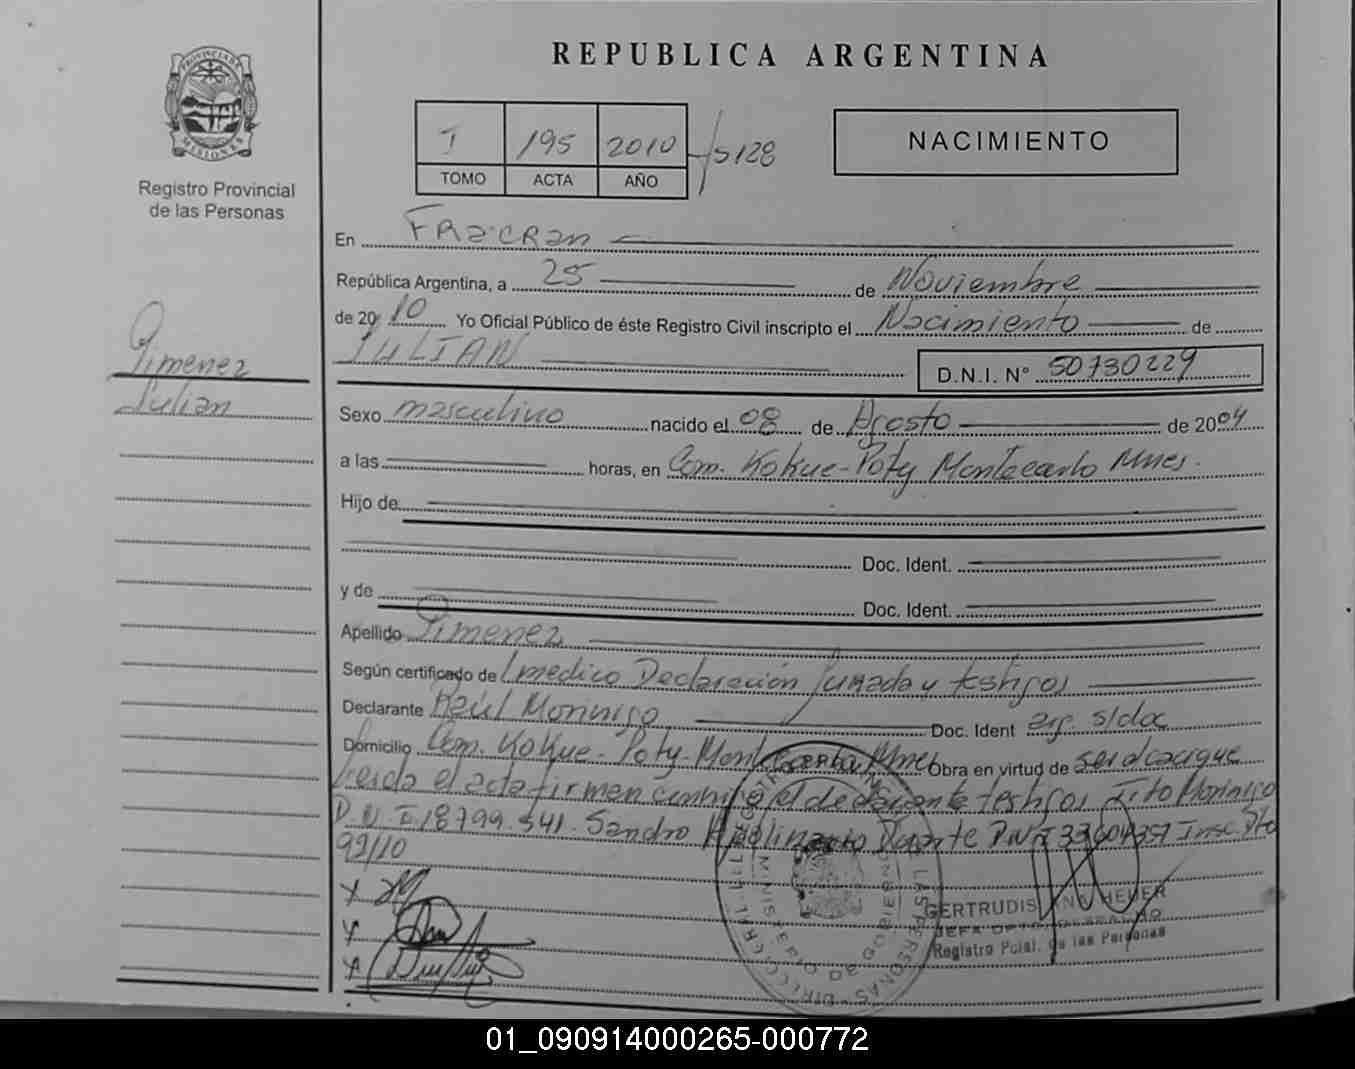 REPUBLICA ARGENTINA
PROVINCIA DE MISIONES
Registro Provincial
de las Personas
I 195 2010 /5128
TOMO ACTA AÑO
NACIMIENTO
Gimenez
Julian
En Fracran
República Argentina, a 25 de Noviembre
de 2010 Yo Oficial Público de éste Registro Civil inscripto el Nacimiento de
JULIAN D.N.I. N° 50730229
Sexo masculino nacido el 08 de Agosto de 2004
a las horas, en Com. Kokue-Poty Montecarlo Mnes.
Hijo de
Doc. Ident.
y de Doc. Ident.
Apellido Gimenez
Según certificado de l medico Declaración Jurada y testigos
Declarante Raúl Morinigo Doc. Ident arg. s/doc
Domicilio Com. Kokue-Poty-Montecarlo Mnes Obra en virtud de ser el cacique
Leida el acta firman conmigo el declarante testigos Tito Morinigo
D.N.I. 18799.541. Sandro Apolinario Duarte DNI 33604357 Insc. Dto
92/10
GERTRUDIS HEUER
Registro Pcial. de las Personas
01_090914000265-000772